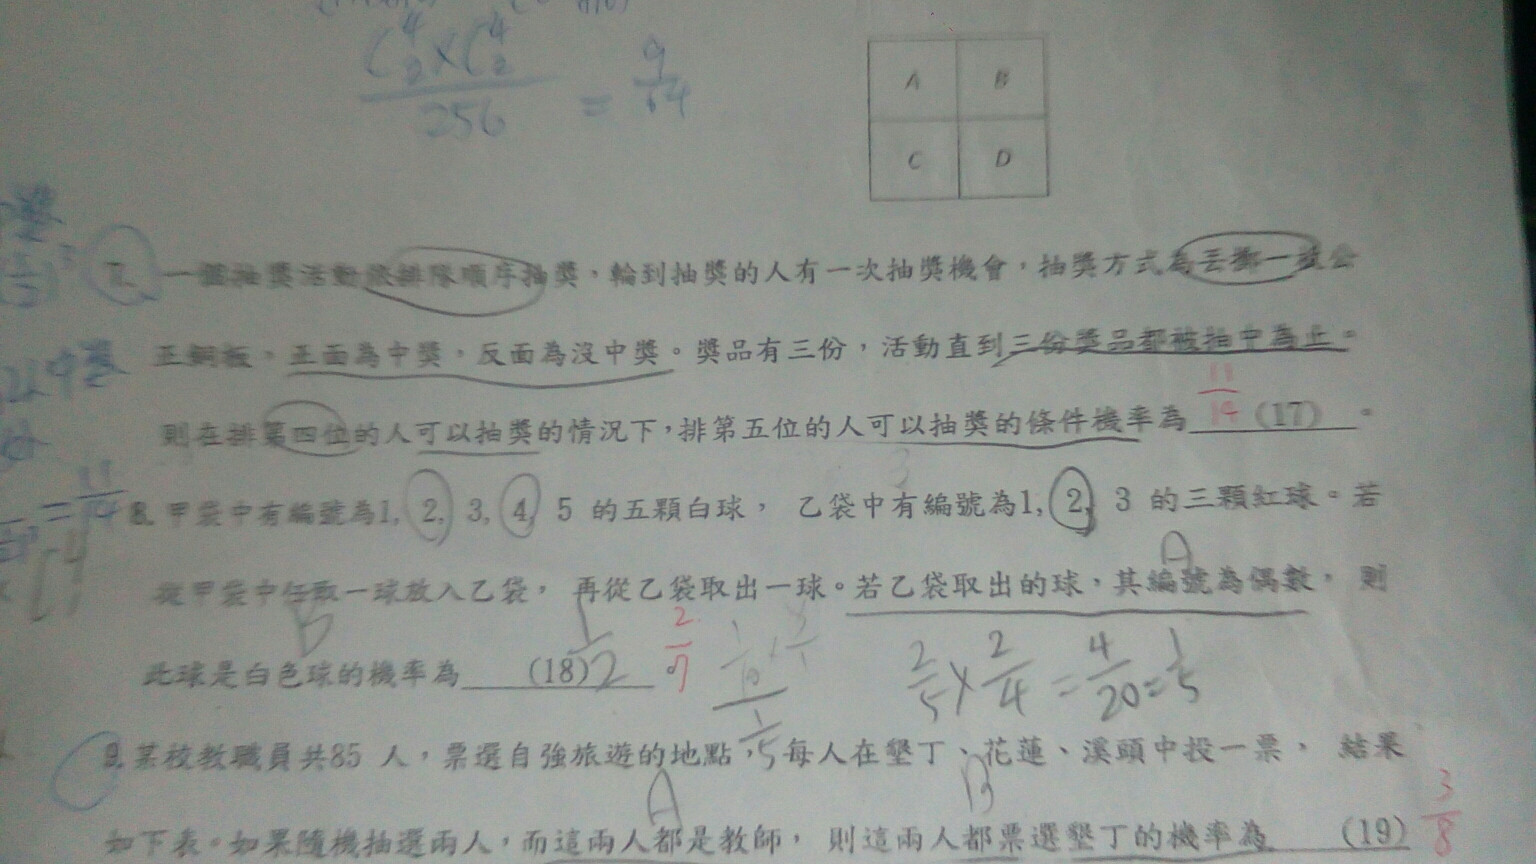 C⁴₂×C⁴₂
256
= 9/64
A B
C D
7. 一個抽獎活動依排隊順序抽獎，輪到抽獎的人有一次抽獎機會，抽獎方式為丟擲一枚公
正銅板，正面為中獎，反面為沒中獎。獎品有三份，活動直到三份獎品都被抽中為止。
11/14
則在排第四位的人可以抽獎的情況下，排第五位的人可以抽獎的條件機率為 (17) 。
= 11/14
8. 甲袋中有編號為1, 2, 3, 4, 5 的五顆白球， 乙袋中有編號為1, 2, 3 的三顆紅球。若
A
從甲袋中任取一球放入乙袋， 再從乙袋取出一球。若乙袋取出的球，其編號為偶數， 則
B
此球是白色球的機率為 (18) 。
1/2
2/7
2/5 × 2/4 = 4/20 = 1/5
9. 某校教職員共85 人，票選自強旅遊的地點，每人在墾丁、花蓮、溪頭中投一票， 結果
A B
如下表。如果隨機抽選兩人，而這兩人都是教師， 則這兩人都票選墾丁的機率為 (19)
3/8